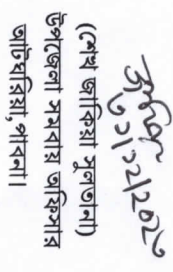 ৩১/১২/২০২৩
(শেখ জাকিয়া সুলতানা)
উপজেলা সমবায় অফিসার
আটঘরিয়া, পাবনা।